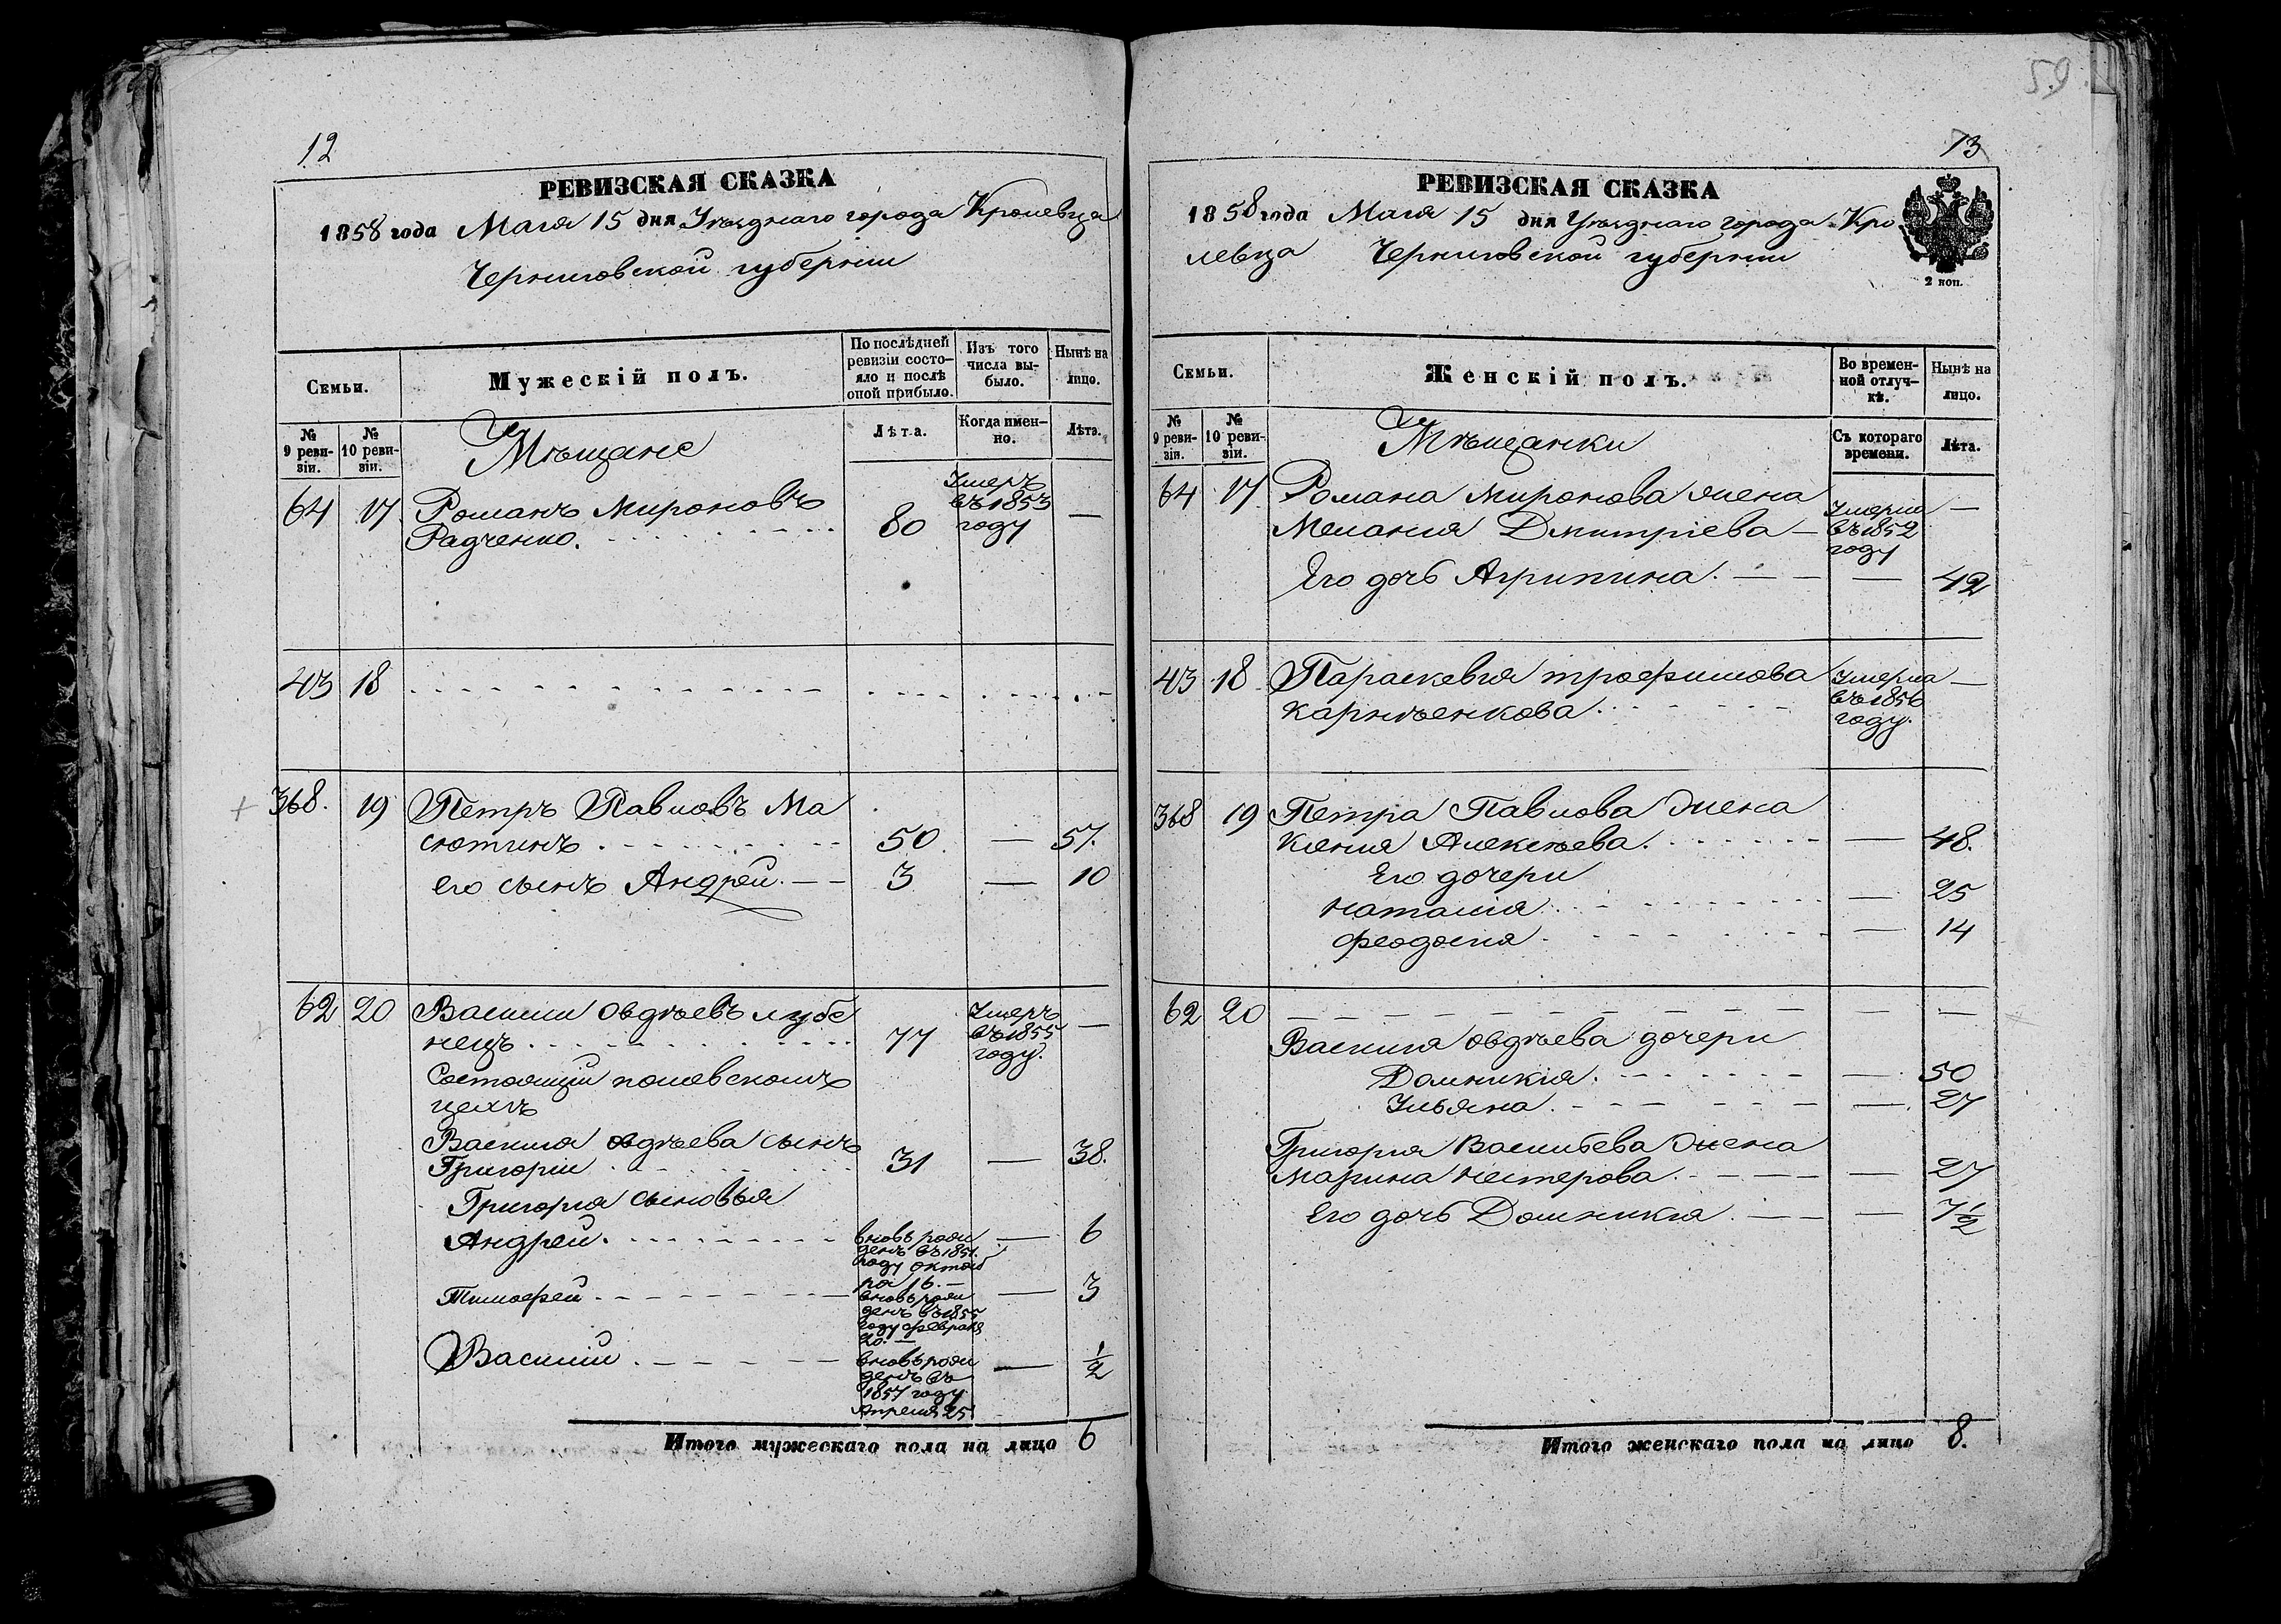 12
РЕВИЗСКАЯ СКАЗКА
1858 года Маія 15 дня Уѣзднаго города Кролевца
Черниговской губерніи
Семьи.
Мужескій полъ.
По послѣдней
ревизіи состо-
яло и послѣ
оной прибыло.
Изъ того
числа вы-
было.
Нынѣ на
лицо.
№
9 реви-
зіи.
№
10 реви-
зіи.
Мѣщане
Лѣта.
Когда имен-
но.
Лѣта.
64 17 Романъ Мироновъ
Радченко. 80 Умеръ
въ 1853
году —
43 18
368. 19 Петръ Павловъ Ма
сютинъ 50 — 57.
его сынъ Андрей. 3 — 10
62 20 Василій Овдѣевъ лубе
нецъ 77 Умеръ
въ 1855
году. —
Состоящій
цехѣ
Василія Овдѣева сынъ
Григорій 31 — 38.
Григорія сыновья
Андрей. вновь рож
денъ въ 1851.
году октяб
ря 16. — 6
Тимофей вновь рож
денъ въ 1855
году февраля
20. — 3
Василій. вновь рож
денъ въ
1857 году
Апреля 25 — 1/2
Итого мужескаго пола на лицо 6
59
13
РЕВИЗСКАЯ СКАЗКА
1858 года Маія 15 дня Уѣзднаго города Кро
левца Черниговской губерніи
2 коп.
Семьи.
Женскій полъ.
Во времен-
ной отлуч-
кѣ.
Нынѣ на
лицо.
№
9 реви-
зіи.
№
10 реви-
зіи.
Мѣщанки
Съ котораго
времени.
Лѣта.
64 17 Романа Миронова жена
Меланія Дмитріева — Умерла
въ 1852
году —
Его дочь Агрипина. — 42
43 18 Параскевія трофимова
карнѣенкова. Умерла
въ 1856
году. —
368 19 Петра Павлова жена
Ксенія Алексѣева. — 48.
Его дочери
наталія — 25
феодосія — 14
62 20 — —
Василія Овдѣева дочери
Домникія. — 50
Ульяна. — 27
Григорія Васильева жена
Марина Нестерова. — 27
Его дочь Домникія. — 7 1/2
Итого женскаго пола на лицо 8.